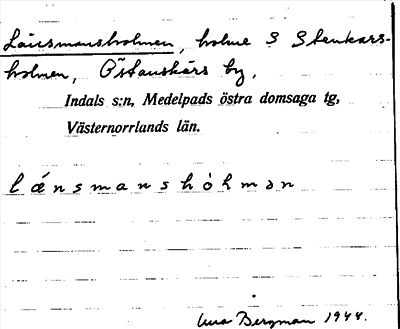 Länsmansholmen, holme S Stenkars-
holmen, Östanskärs by,
Indals s:n, Medelpads östra domsaga tg,
Västernorrlands län.
lǽnsmanshòlmən
Bergman 1944.